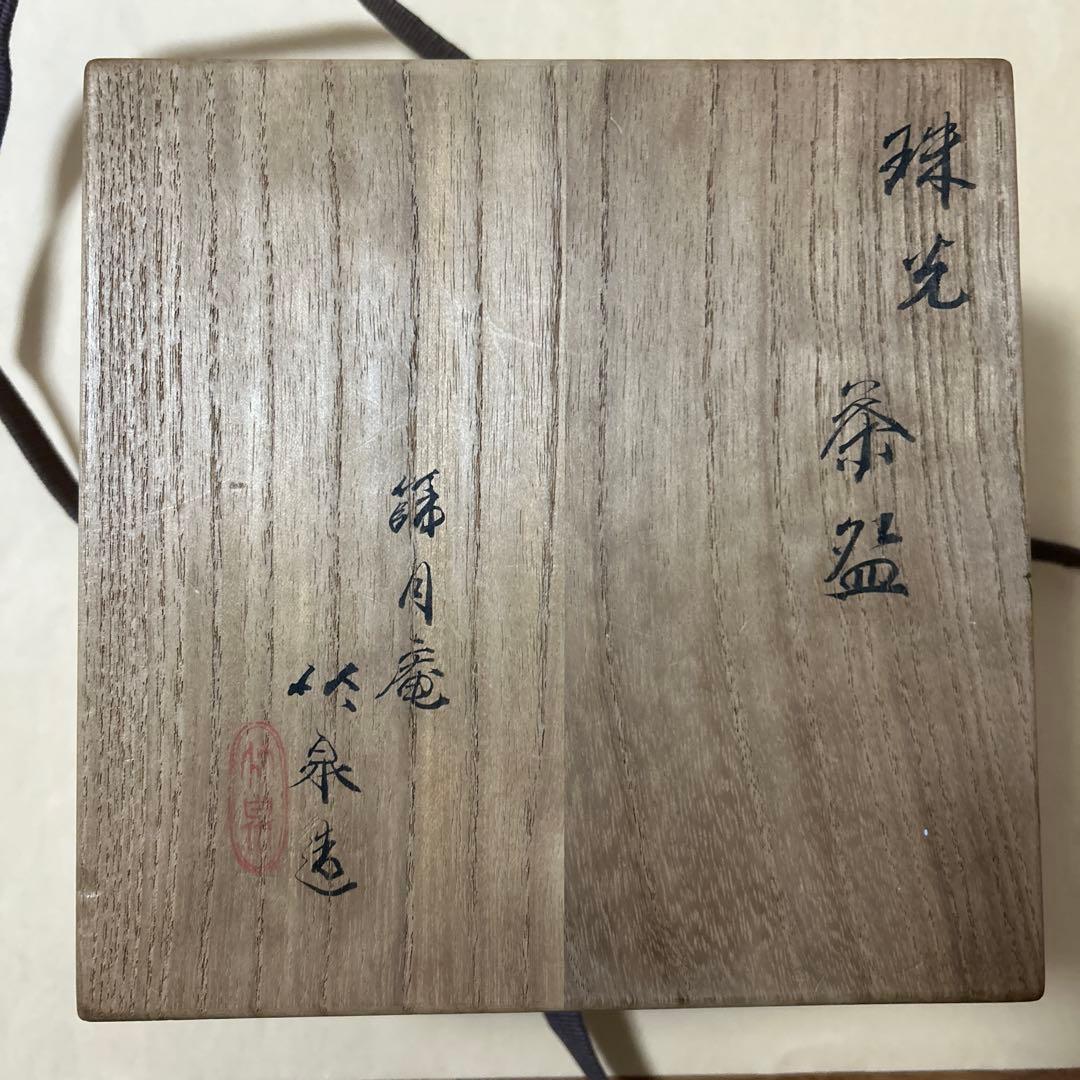 珠光
茶盌
篩月庵
竹泉造
竹泉